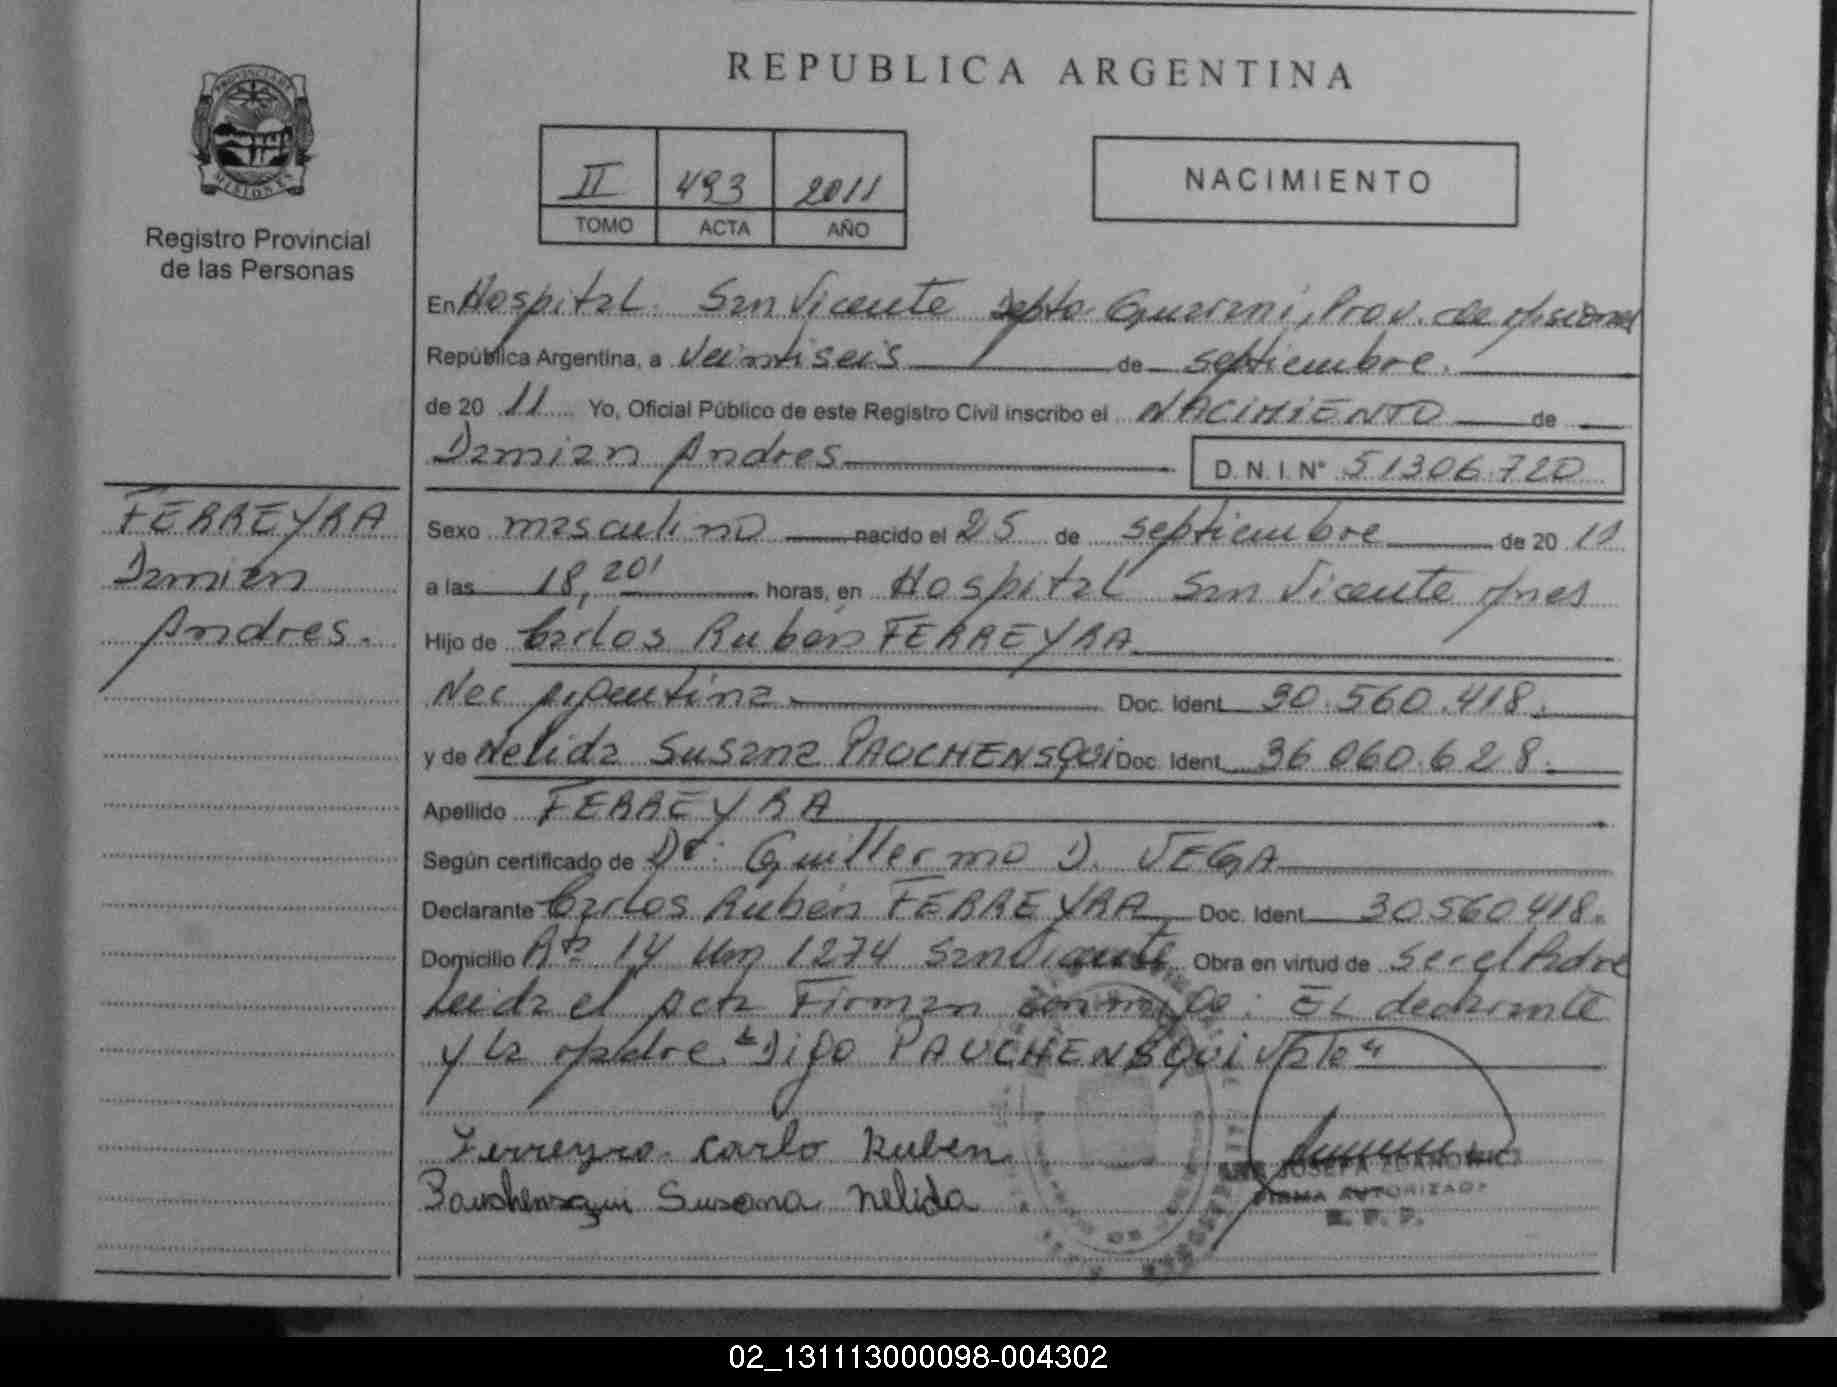 REPUBLICA ARGENTINA
PROVINCIA DE
MISIONES
Registro Provincial
de las Personas
II 493 2011
TOMO ACTA AÑO
NACIMIENTO
En Hospital San Vicente Depto Guarani, Prov. de Misiones
República Argentina, a veintiseis de septiembre.
de 20 11 Yo, Oficial Público de este Registro Civil inscribo el NACIMIENTO de
Damian Andres D.N.I.N° 51306.720
FERREYRA
Damian
Andres.
Sexo masculino nacido el 25 de septiembre de 20 11
a las 18,20' horas, en Hospital San Vicente Mnes
Hijo de Carlos Rubén FERREYRA
Nac Argentina Doc. Ident. 30.560.418.
y de Nelida Susana PAUCHENSQUI Doc. Ident. 36.060.628.
Apellido FERREYRA
Según certificado de Dr. Guillermo D. VEGA
Declarante Carlos Rubén FERREYRA Doc. Ident. 30560418.
Domicilio Rta 14 Km 1274 San Vicente Obra en virtud de ser el Padre
Leida el Acta Firman conmigo: EL declarante
y la Madre. "Digo PAUCHENSQUI Vale"
Ferreyra Carlo Ruben
Pauchensqui Susana Nelida
JOSEFA
FIRMA AUTORIZADA
R. P. P.
02_131113000098-004302